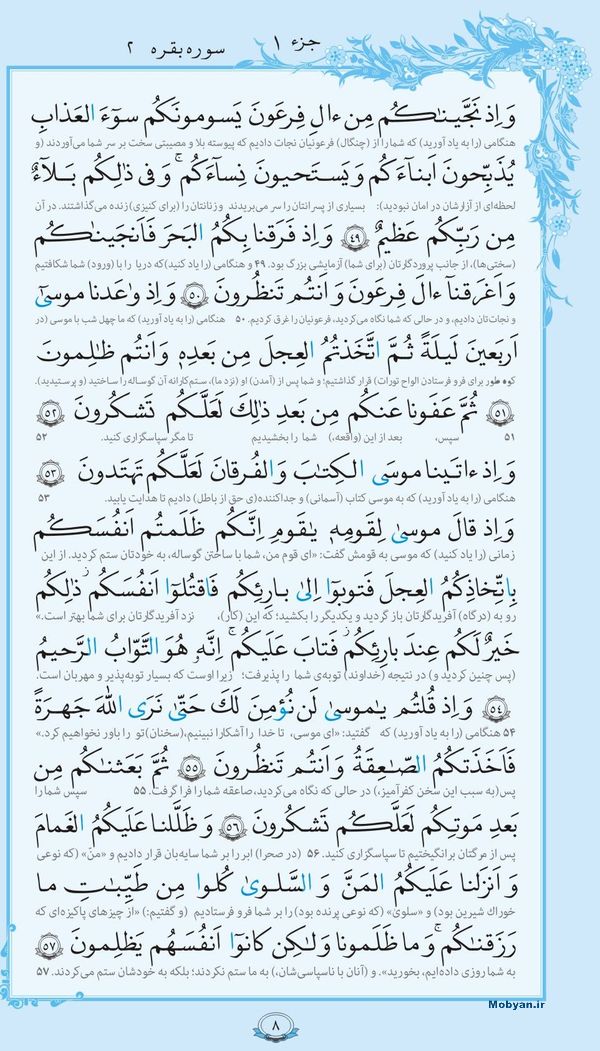 جزء ۱
سوره بقره ۲
وَ اِذ نَجَّيناكُم مِن ءالِ فِرعَونَ يَسومونَكُم سوٓءَ العَذابِ
هنگامی (را به یاد آورید) که شما را از (چنگال) فرعونیان نجات دادیم که پیوسته بلا و مصیبتی سخت بر سر شما می‌آوردند (و
يُذَبِّحونَ اَبنآءَكُم وَ يَستَحيونَ نِسآءَكُم ۚ وَ فى ذٰلِكُم بَلآءٌ
لحظه‌ای از آزارشان در امان نبودید): بسیاری از پسرانتان را سر می‌بریدند و زنانتان را (برای کنیزی) زنده می‌گذاشتند. در آن
مِن رَبِّكُم عَظيمٌ ﴿۴۹﴾ وَ اِذ فَرَقنا بِكُمُ البَحرَ فَاَنجَيناكُم
(سختی‌ها)، از جانب پروردگارتان (برای شما) آزمایشی بزرگ بود. ۴۹ و هنگامی (را یاد کنید) که دریا را با (ورود) شما شکافتیم
وَ اَغرَقنآ ءالَ فِرعَونَ وَ اَنتُم تَنظُرونَ ﴿۵۰﴾ وَ اِذ واعَدنا موسىٰٓ
و نجات‌تان دادیم، و در حالی که شما نگاه می‌کردید، فرعونیان را غرق کردیم. ۵۰ هنگامی (را به یاد آورید) که ما چهل شب با موسی (در
اَربَعينَ لَيلَةً ثُمَّ اتَّخَذتُمُ العِجلَ مِن بَعدِهٖ وَ اَنتُم ظالِمونَ
کوه طور برای فرو فرستادن الواح تورات) قرار گذاشتیم؛ و شما پس از (آمدن) او (نزد ما)، ستم‌کارانه آن گوساله را ساختید (و پرستیدید).
﴿۵۱﴾ ثُمَّ عَفَونا عَنكُم مِن بَعدِ ذٰلِكَ لَعَلَّكُم تَشكُرونَ ﴿۵۲﴾
۵۱ سپس، بعد از این (واقعه)، شما را بخشیدیم تا مگر سپاسگزاری کنید. ۵۲
وَ اِذ ءاتَينا موسَى الكِتٰبَ وَ الفُرقانَ لَعَلَّكُم تَهتَدونَ ﴿۵۳﴾
هنگامی (را به یاد آورید) که به موسی کتاب (آسمانی) و جداکننده‌(ی حق از باطل) دادیم تا هدایت یابید. ۵۳
وَ اِذ قالَ موسىٰ لِقَومِهٖ يٰقَومِ اِنَّكُم ظَلَمتُم اَنفُسَكُم
زمانی (را یاد کنید) که موسی به قومش گفت: «ای قوم من، شما با ساختن گوساله، به خودتان ستم کردید. از این
بِاتِّخاذِكُمُ العِجلَ فَتوبوٓا اِلىٰ بارِئِكُم فَاقتُلوٓا اَنفُسَكُم ذٰلِكُم
رو به (درگاه) آفریدگارتان باز گردید و یکدیگر را بکشید؛ که این (کار)، نزد آفریدگارتان برای شما بهتر است.»
خَيرٌ لَكُم عِندَ بارِئِكُم فَتابَ عَلَيكُم ۚ اِنَّهٗ هُوَ التَّوّابُ الرَّحيمُ
(پس چنین کردید و) در نتیجه (خداوند) توبه‌ی شما را پذیرفت؛ زیرا اوست که بسیار توبه‌پذیر و مهربان است.
﴿۵۴﴾ وَ اِذ قُلتُم يٰموسىٰ لَن نُؤمِنَ لَكَ حَتّىٰ نَرَى اللهَ جَهرَةً
۵۴ هنگامی (را به یاد آورید) که گفتید: «ای موسی، تا خدا را آشکارا نبینیم، (سخنان) تو را باور نخواهیم کرد.»
فَاَخَذَتكُمُ الصّاعِقَةُ وَ اَنتُم تَنظُرونَ ﴿۵۵﴾ ثُمَّ بَعَثناكُم مِن
پس (به سبب این سخن کفرآمیز)، در حالی که نگاه می‌کردید، صاعقه شما را فرا گرفت. ۵۵ سپس شما را
بَعدِ مَوتِكُم لَعَلَّكُم تَشكُرونَ ﴿۵۶﴾ وَ ظَلَّلنا عَلَيكُمُ الغَمامَ
پس از مرگتان برانگیختیم تا سپاسگزاری کنید. ۵۶ (در صحرا) ابر را بر شما سایه‌بان قرار دادیم و «منّ» (که نوعی
وَ اَنزَلنا عَلَيكُمُ المَنَّ وَ السَّلوىٰ كُلوا مِن طَيِّباتِ ما
خوراک شیرین بود) و «سلوی» (که نوعی پرنده بود) را بر شما فرو فرستادیم (و گفتیم:) «از چیزهای پاکیزه‌ای که
رَزَقناكُم ۚ وَ ما ظَلَمونا وَ لٰكِن كانوٓا اَنفُسَهُم يَظلِمونَ ﴿۵۷﴾
به شما روزی داده‌ایم، بخورید». و (آنان با ناسپاسی‌شان)، به ما ستم نکردند؛ بلکه به خودشان ستم می‌کردند. ۵۷
Mobyan.ir
۸